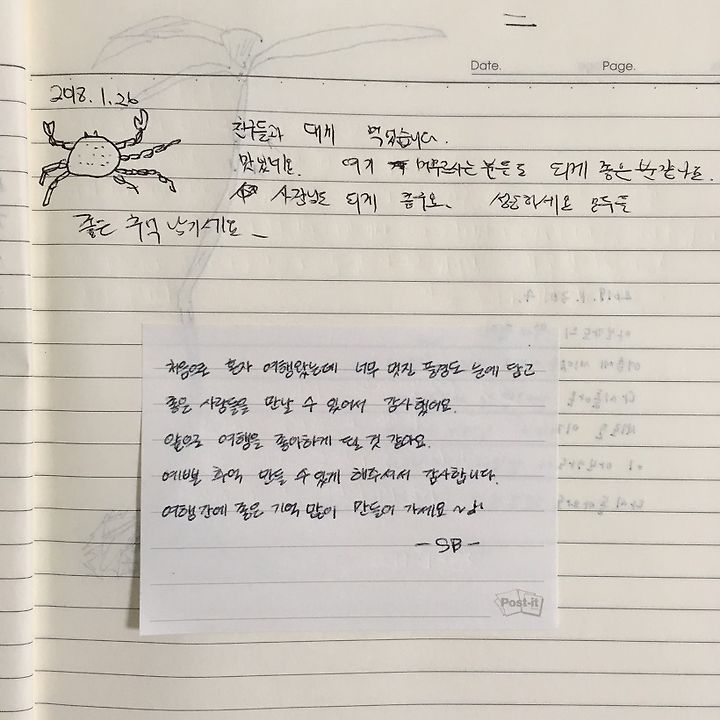 Date. Page.
2018.1.26
친구들과 대게 먹었습니다.
맛있네요. 여기 머무르시는 분들도 되게 좋은 분 같네요.
사장님도 되게 좋구요. 성인하세요 모두들
좋은 추억 남기세요
처음으로 혼자 여행왔는데 너무 멋진 풍경도 눈에 담고
좋은 사람들을 만날 수 있어서 감사했어요.
앞으로 여행을 좋아하게 될 것 같아요.
예쁜 추억 만들 수 있게 해주셔서 감사합니다.
여행간에 좋은 기억 많이 만들어 가세요 ~♪
- SB -
Post-it